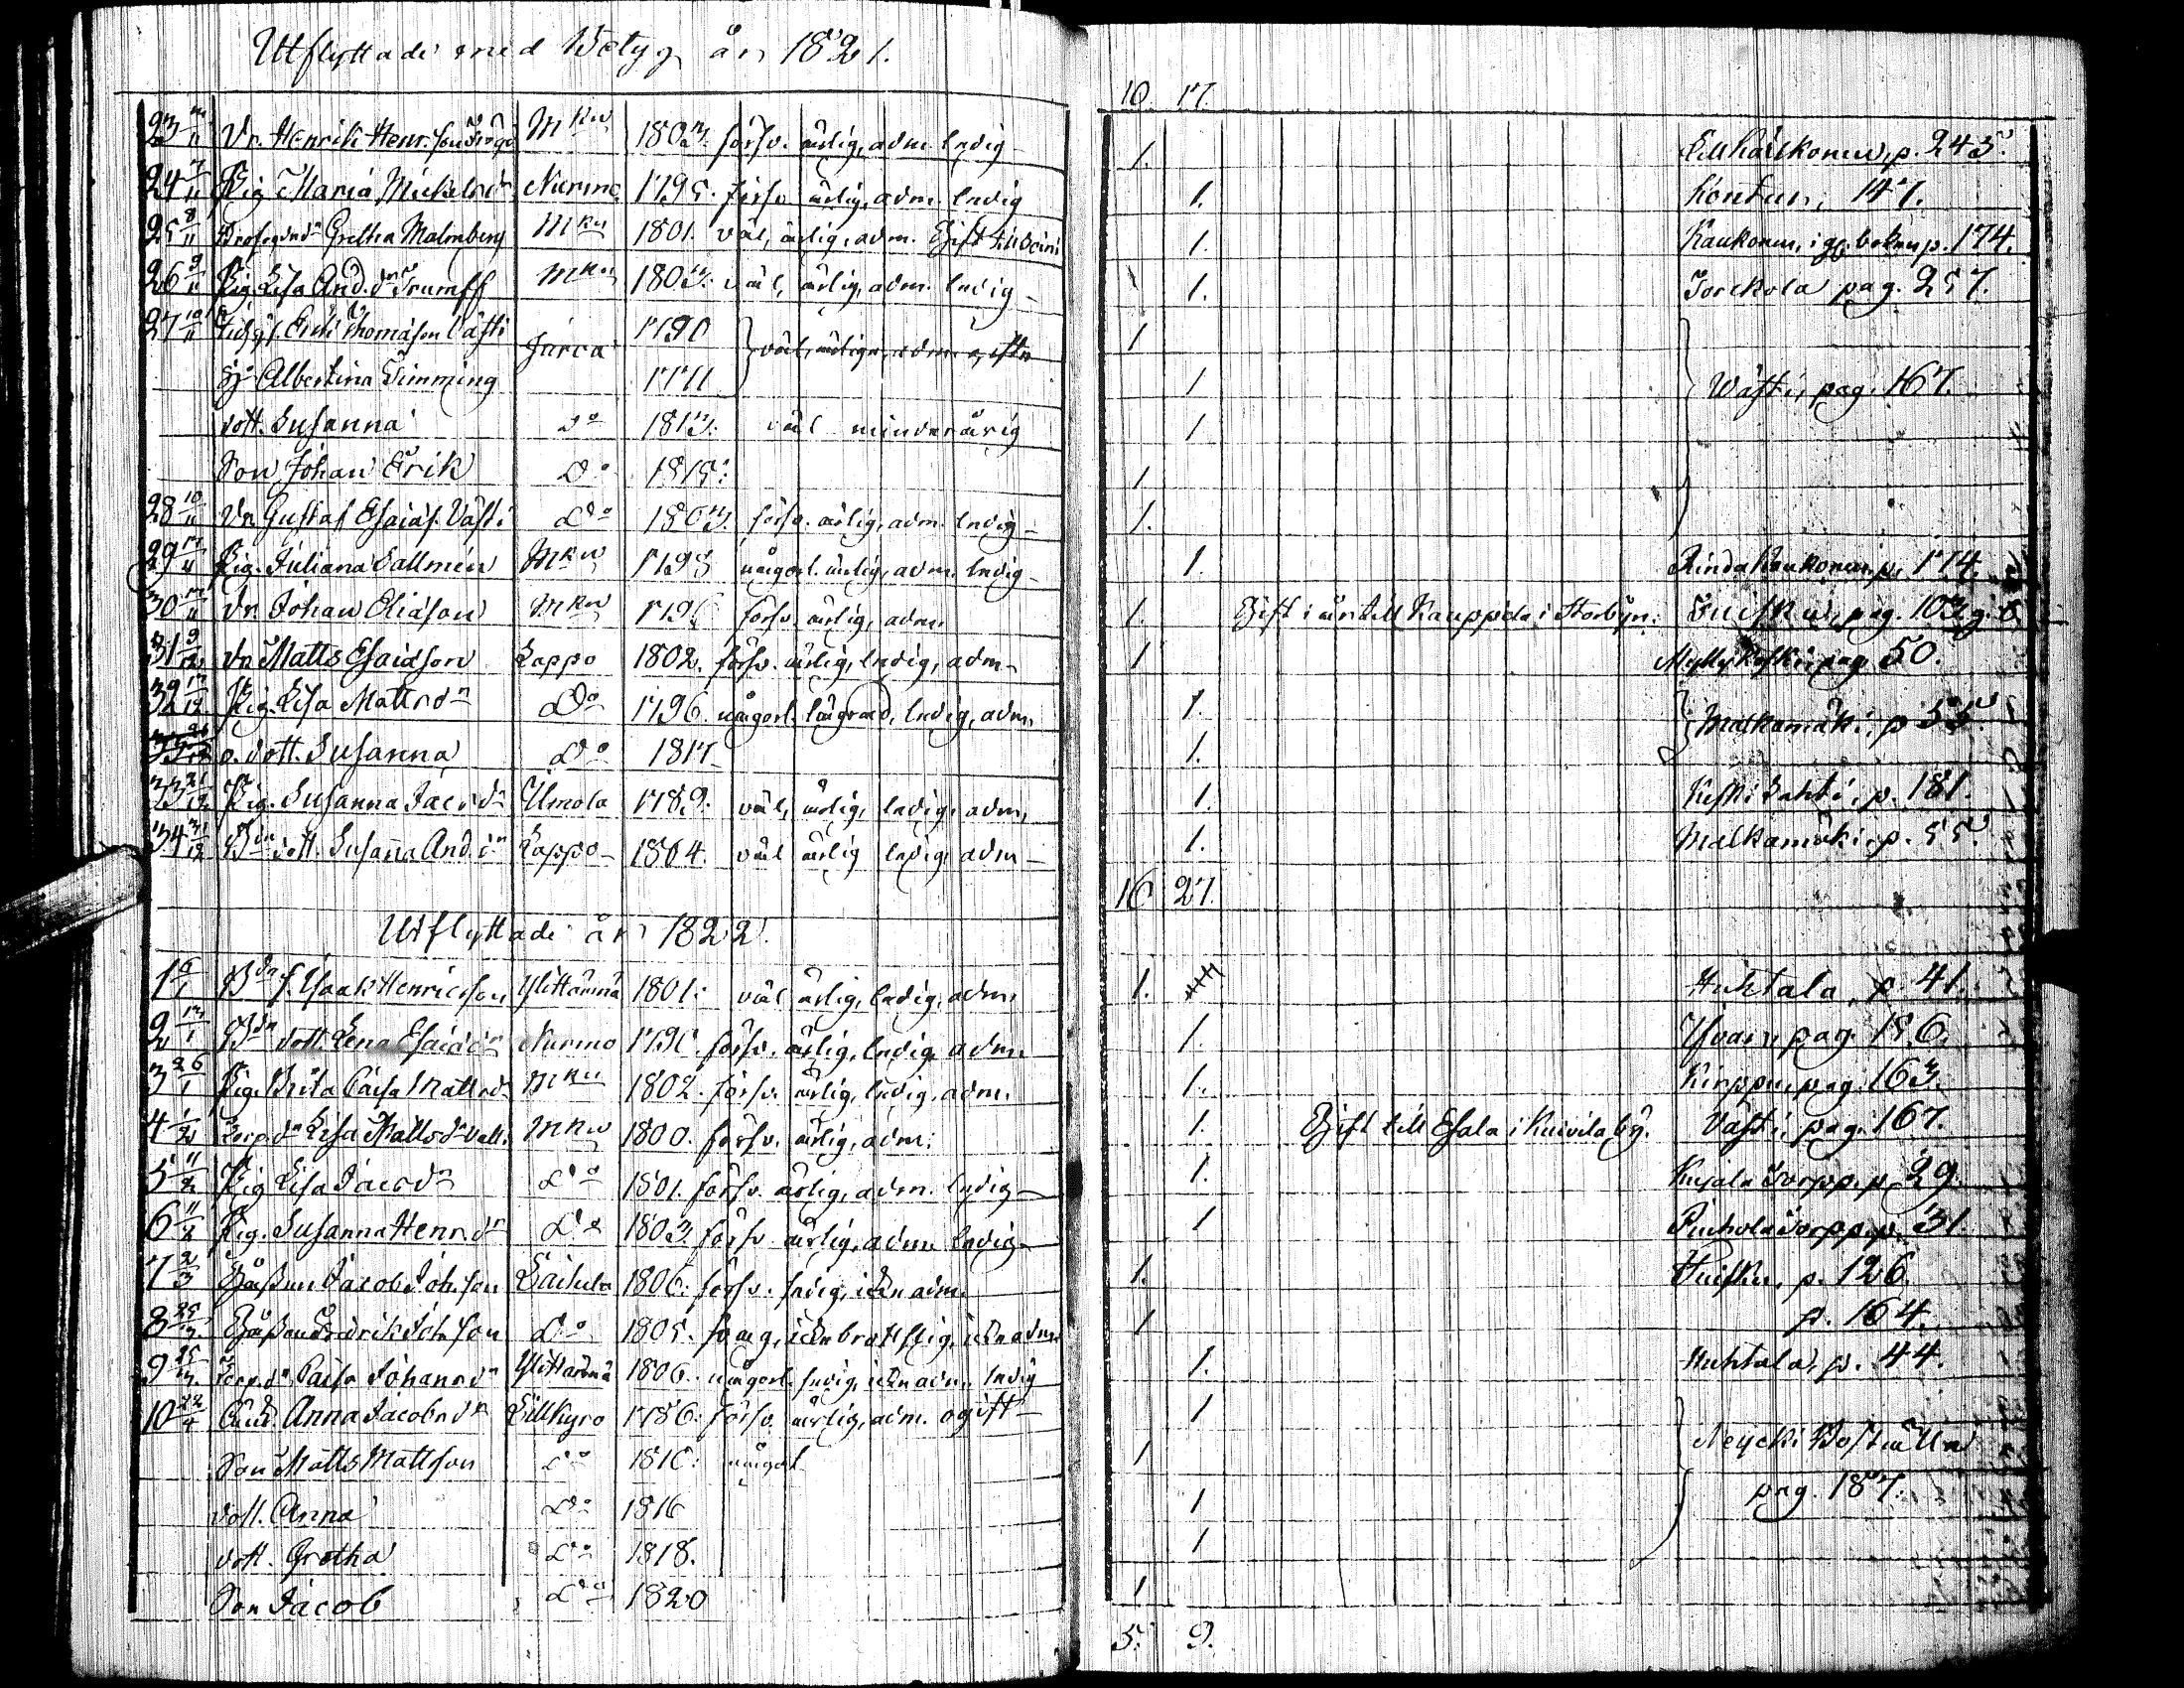 Utflyttade med Betyg år 1821.
10. 17.
23 Dr. Henrik Henr.son Mkw 1803. förs. ärlig, adm. ledig 1. p. 243.
24 7/11 Pig. Maria Michelsdr Nurmo 1795. förs. ärlig, adm. ledig 1. 147.
25 8/11 Gretha Malmberg Mkw 1801. väl, ärlig, adm. 1. Kaukonen, i gl. boken p. 174.
26 9/11 Pig. Lisa And.dr Trumff Mkw 1803. väl, ärlig, adm. ledig 1. Jorckola pag. 257.
27 10/11 Erik Thomasson Västi 1790 väl, ärliga, adm. gifta 1
H. Albertina Timming 1771 1 Wästi, pag. 167.
dott. Susanna Do 1813. väl minderårig 1
Son Johan Erik Do 1815. 1
28 10/11 Dr. Gustaf Esaias. Västi Do 1803. förs. ärlig, adm. ledig 1.
29 Pig. Juliana Mkw 1798 någorl. ärlig, adm. ledig 1. Kaukonen p. 174.
30 Dr. Johan Eliason Mkw 1796 förs. ärlig, adm. 1. Gift i år till Kauppila i Storbyn. pag. 103.
31 9/12 Dr. Matts Esaiason Lappo 1802. förs. ärlig, ledig, adm. 1 Myllykoski pag. 50.
32 17/12 Pig. Lisa Mattsdr Do 1796. någorl. lägrad, ledig, adm. 1. Malkamäki, p. 55.
o. dott. Susanna Do 1817 1.
33 21/12 Pig. Susanna Jacsdr Ilmola 1789. väl, ärlig, ledig, adm. 1. Keski Lahti, p. 181.
34 31/12 Bdn dott. Susanna And.dr Lappo 1804. väl ärlig ledig adm 1. Malkamäki, p. 55.
16 27.
Utflyttade år 1822.
1 6/1 Bdn s. Isaak Henricsson Ylihärmä 1801. väl ärlig, ledig, adm. 1. Huhtala, p. 41.
2 13/1 Bdn dott. Lena Esaiædr Nurmo 1796. förs. ärlig, ledig, adm. 1. pag. 156.
3 26/1 Pig. Brita Caisa Mattsdr Mkw 1802. förs. ärlig, ledig, adm. 1. Kirppu, pag. 163.
4 1/2 Lisa Mattsdr Mkw 1800. förs. ärlig, adm. 1. Gift till Esala i Kuivila by. Västi, pag. 167.
5 11/2 Pig Lisa Jacsdr Do 1801. förs. ärlig, adm. ledig 1. Kujala Torpp. p. 29.
6 11/2 Pig. Susanna Henr.dr Do 1803. förs. ärlig, adm. ledig 1 Torpp. p. 31.
7 2/3 Gåssen Jacob Joh.son Laihela 1806. förs. ledig, icke adm. 1. p. 126.
8 25/3 Gåssen Fredrik Joh.son Do 1805. icke brottslig, icke adm. 1 p. 164.
9 25/3 Caisa Johansdr Ylihärmä 1806. någorl. icke adm. ledig 1. Huhtala, p. 44.
10 22/4 Anna Jacobsdr Lillkyro 1786. förs. ärlig, adm. ogift 1
Son Matts Mattson Do 1810. någorl. 1 Neycki Bostället
dott. Anna Do 1816 1 pag. 187.
dott. Gretha Do 1818. 1
Son Jacob Do 1820 1
5. 9.